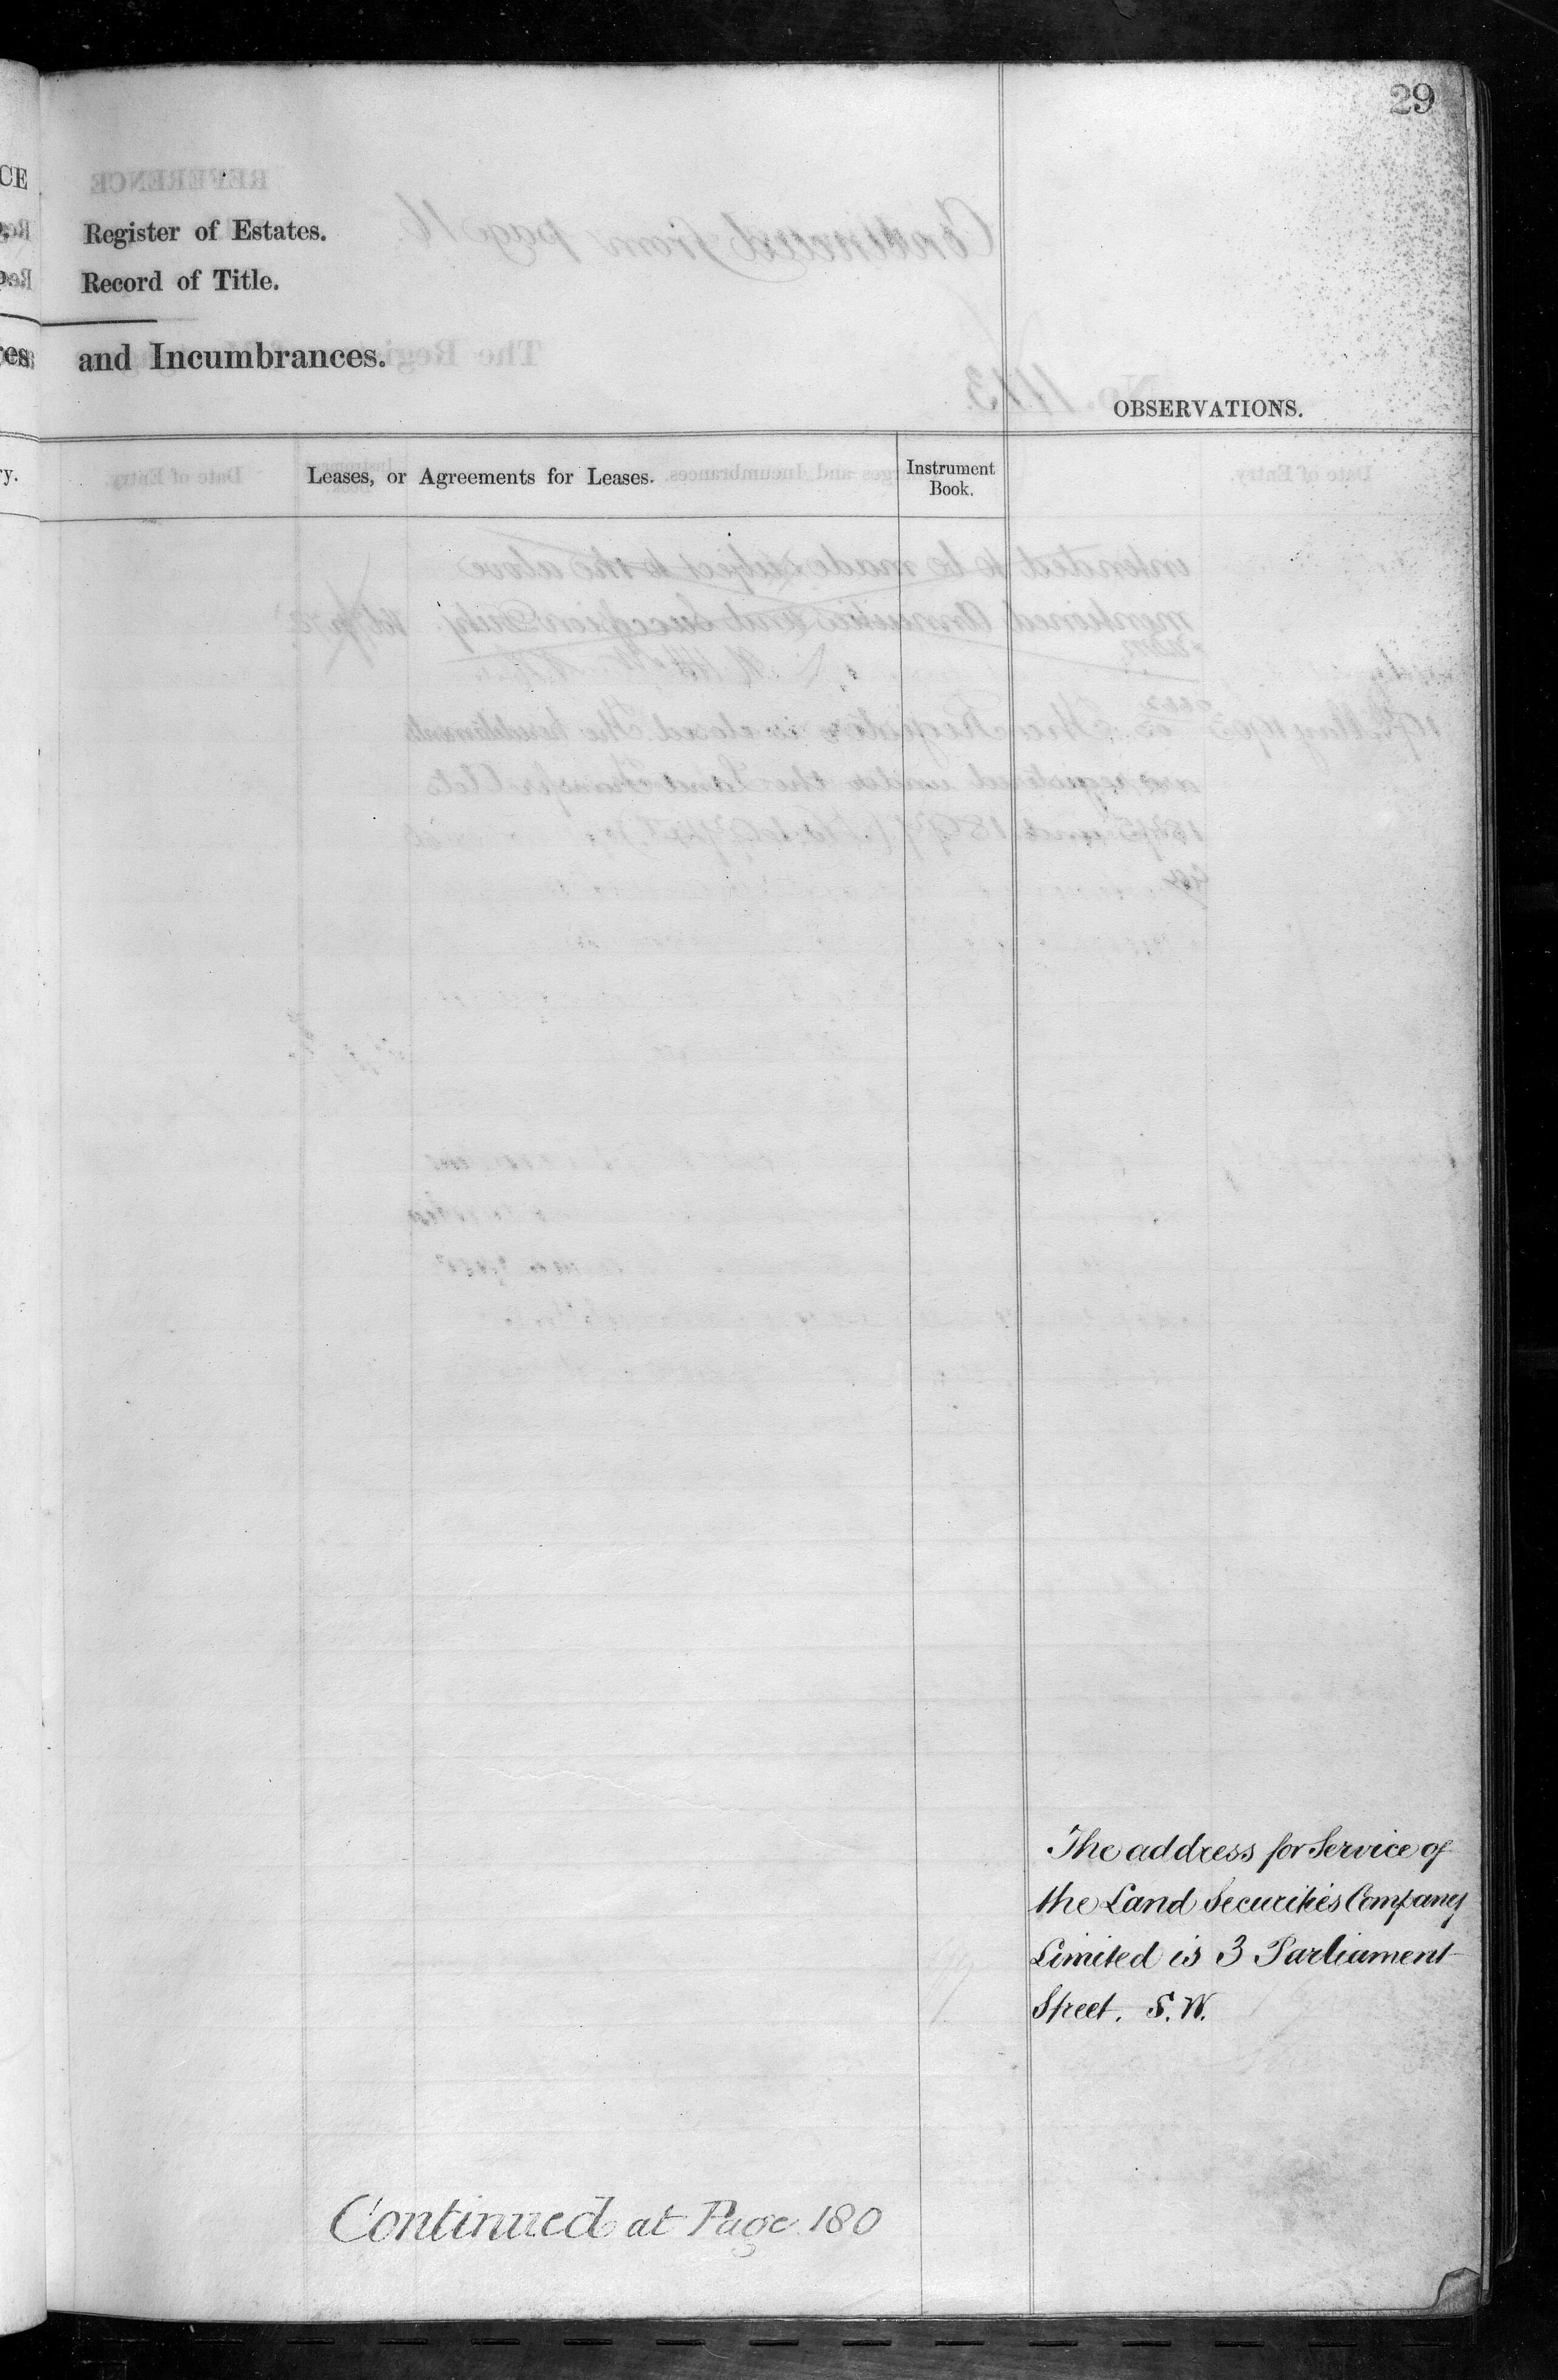 29
Register of Estates.
Record of Title.
and Incumbrances.
OBSERVATIONS.
Leases, or Agreements for Leases.
Instrument
Book.
The address for Service of
the Land Securities Company
Limited is 3 Parliament
Street. S.W.
Continued at Page 180